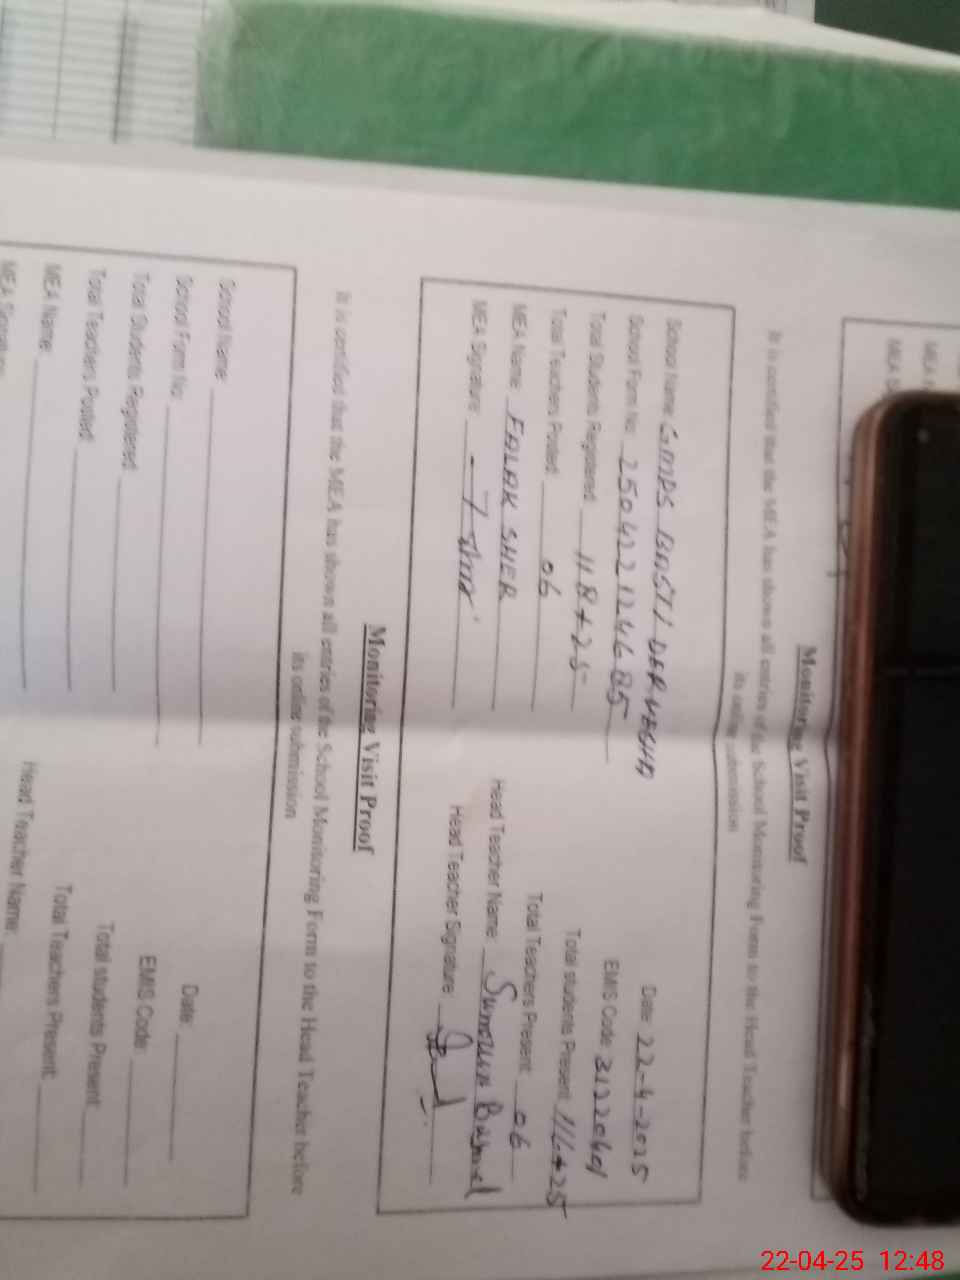 MEA N
MEA S
Monitoring Visit Proof
It is certified that the MEA has shown all entries of the School Monitoring Form to the Head Teacher before
its online submission
School Name: GMPS BASTI DARWESHA Date: 22-4-2025
School Form No: 250422124685 EMIS Code: 31220601
Total Students Registered: 118+25 Total students Present: 116+25
Total Teachers Posted: 06 Total Teachers Present: 06
MEA Name: FALAK SHER Head Teacher Name:
MEA Signature: Head Teacher Signature:
Monitoring Visit Proof
It is certified that the MEA has shown all entries of the School Monitoring Form to the Head Teacher before
its online submission
School Name: Date:
School Form No: EMIS Code:
Total Students Registered: Total students Present:
Total Teachers Posted: Total Teachers Present:
MEA Name: Head Teacher Name:
MEA Signature:
22-04-25 12:48